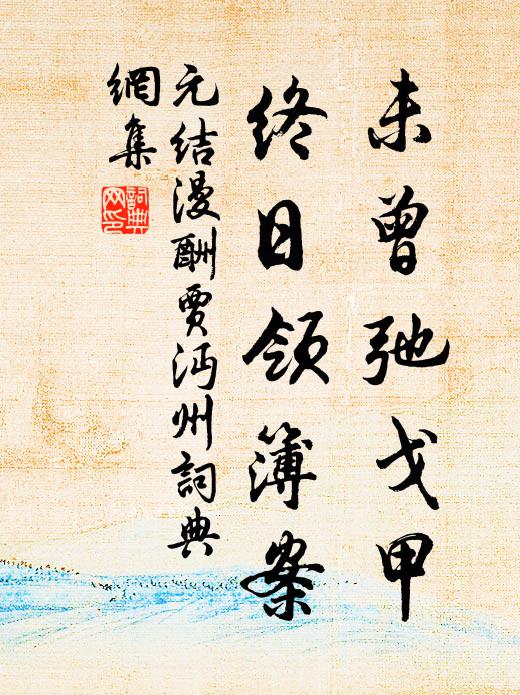 未曾弛戈甲
终日领簿案
元结漫酬贾沔州词典
網集
詞典
网印